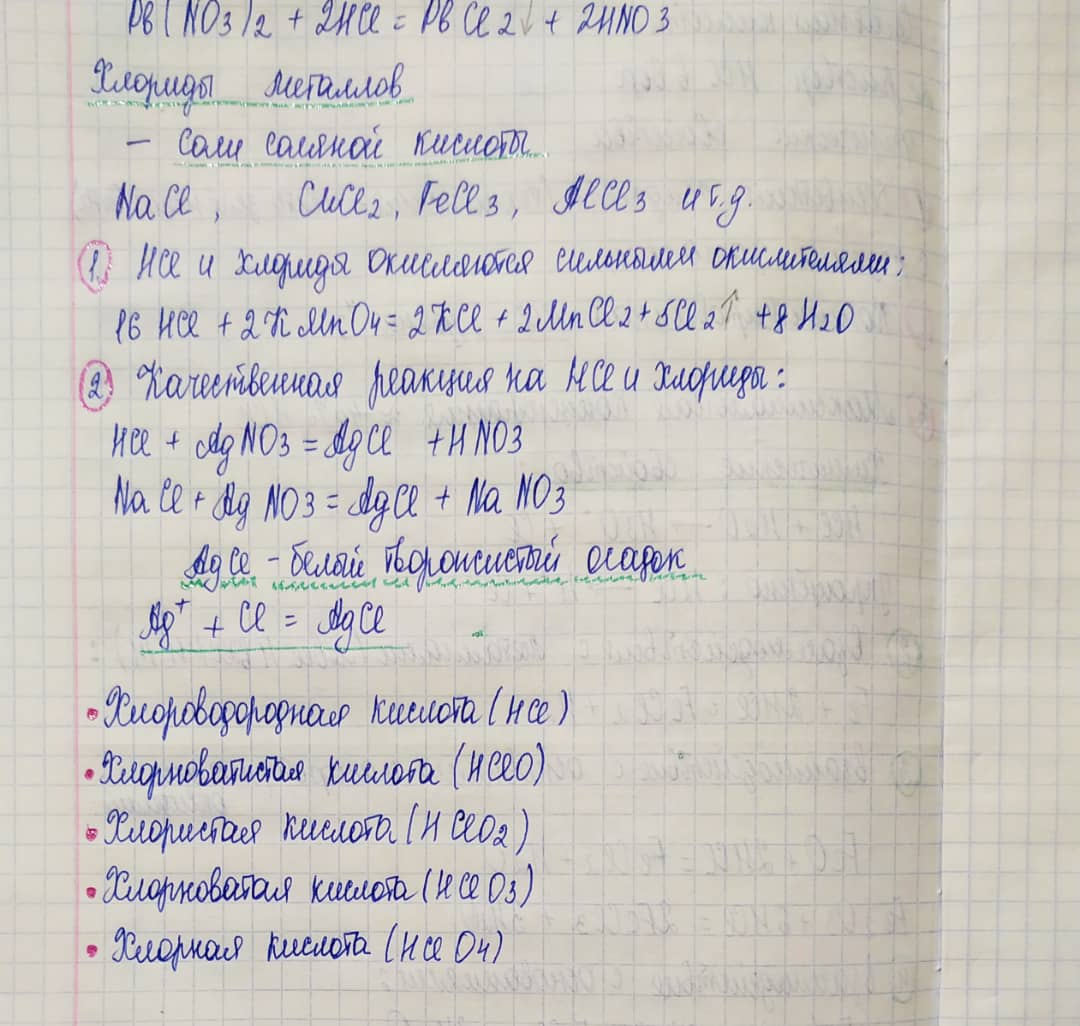 Pb(NO3)2 + 2HCl = PbCl2↓ + 2HNO3
Хлориды металлов
– соли соляной кислоты
NaCl, CuCl2, FeCl3, AlCl3 и т.д.
1. HCl и хлориды окисляются сильными окислителями:
16 HCl + 2KMnO4 = 2KCl + 2MnCl2 + 5Cl2↑ + 8H2O
2. Качественная реакция на HCl и хлориды:
HCl + AgNO3 = AgCl + HNO3
NaCl + AgNO3 = AgCl + NaNO3
AgCl - белый творожистый осадок
Ag⁺ + Cl = AgCl
• Хлороводородная кислота (HCl)
• Хлорноватистая кислота (HClO)
• Хлористая кислота (HClO2)
• Хлорноватая кислота (HClO3)
• Хлорная кислота (HClO4)